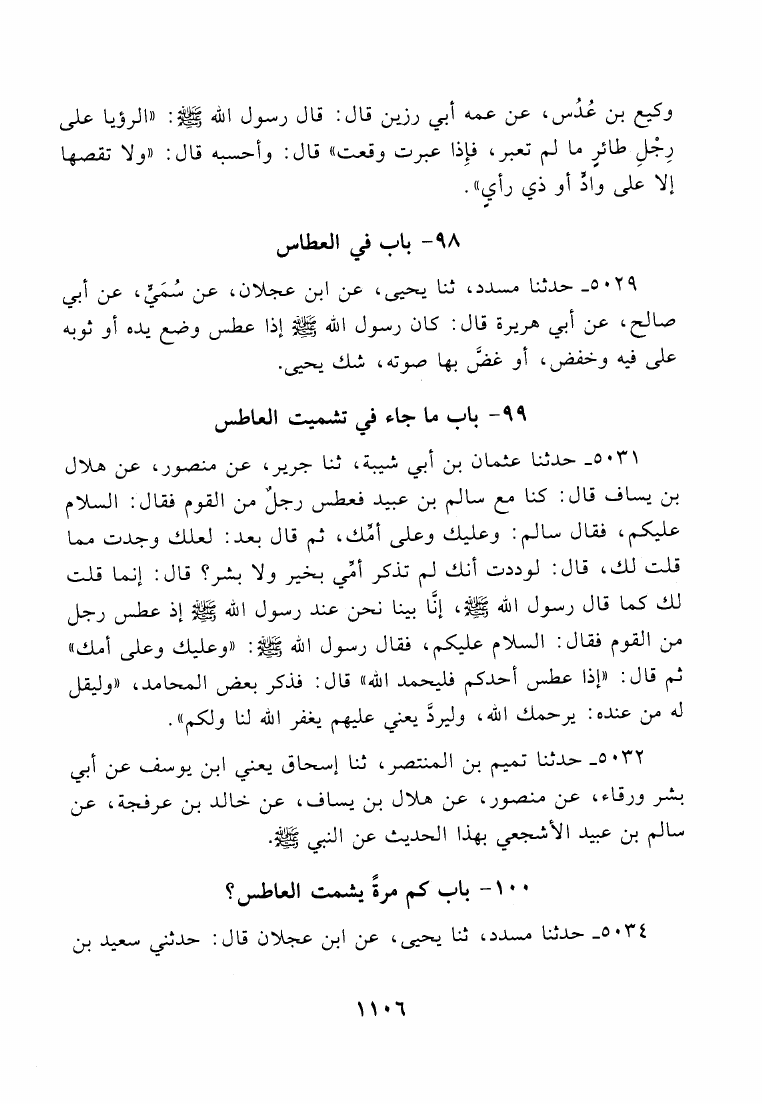 وكيع بن عُدُس، عن عمه أبي رزين قال: قال رسول الله ﷺ: «الرؤيا على
رِجْلِ طائرٍ ما لم تعبر، فإِذا عبرت وقعت» قال: وأحسبه قال: «ولا تقصها
إلا على وادٍّ أو ذي رأيٍ».
٩٨- باب في العطاس
٥٠٢٩ـ حدثنا مسدد، ثنا يحيى، عن ابن عجلان، عن سُمَيٍّ، عن أبي
صالح، عن أبي هريرة قال: كان رسول الله ﷺ إذا عطس وضع يده أو ثوبه
على فيه وخفض، أو غضَّ بها صوته، شك يحيى.
٩٩- باب ما جاء في تشميت العاطس
٥٠٣١ـ حدثنا عثمان بن أبي شيبة، ثنا جرير، عن منصور، عن هلال
بن يساف قال: كنا مع سالم بن عبيد فعطس رجلٌ من القوم فقال: السلام
عليكم، فقال سالم: وعليك وعلى أمِّك، ثم قال بعد: لعلك وجدت مما
قلت لك، قال: لوددت أنك لم تذكر أمِّي بخير ولا بشر؟ قال: إنما قلت
لك كما قال رسول الله ﷺ، إنَّا بينا نحن عند رسول الله ﷺ إذ عطس رجل
من القوم فقال: السلام عليكم، فقال رسول الله ﷺ: «وعليك وعلى أمك»
ثم قال: «إذا عطس أحدكم فليحمد الله» قال: فذكر بعض المحامد، «وليقل
له من عنده: يرحمك الله، وليردَّ يعني عليهم يغفر الله لنا ولكم».
٥٠٣٢ـ حدثنا تميم بن المنتصر، ثنا إسحاق يعني ابن يوسف عن أبي
بشر ورقاء، عن منصور، عن هلال بن يساف، عن خالد بن عرفجة، عن
سالم بن عبيد الأشجعي بهذا الحديث عن النبي ﷺ.
١٠٠- باب كم مرةً يشمت العاطس؟
٥٠٣٤ـ حدثنا مسدد، ثنا يحيى، عن ابن عجلان قال: حدثني سعيد بن
١١٠٦